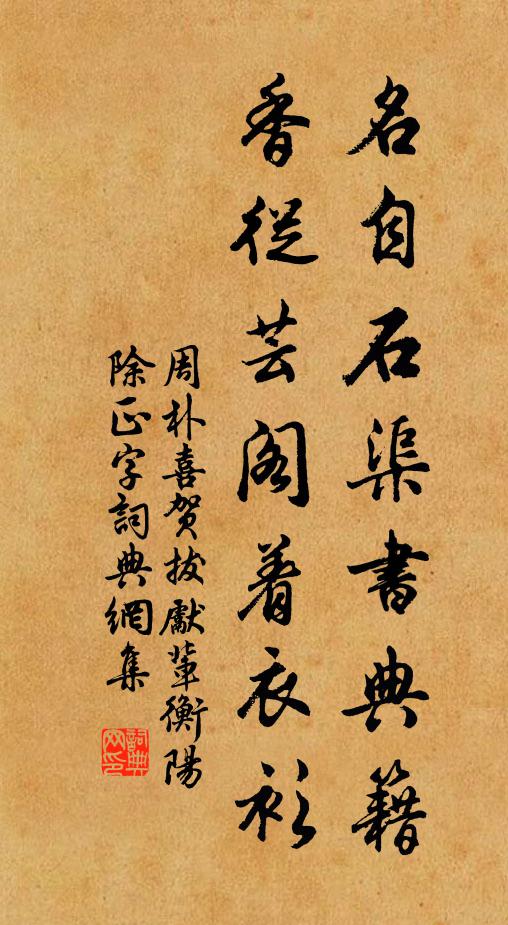 名自石渠書典籍
香從芸閣着衣衫
周朴喜贺拔獻輩衡陽
除正字詞典網集
詞典网印